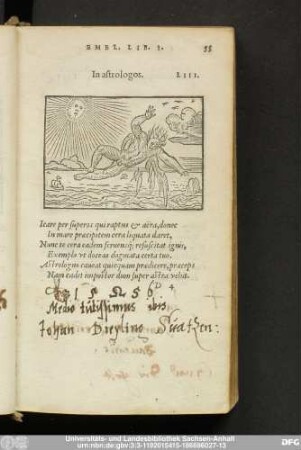 EMBL. LIB. I. 55
In astrologos. LIII.
Icare per superos qui raptus & aëra, donec
In mare præcipitem cera liquata daret,
Nunc te cera eadem feruensq; resuscitat ignis,
Exemplo ut doceas dogmata certa tuo.
Astrologus caueat quicquam prædicere, præceps
Nam cadet impostor dum super astra uehit.
Medio tutissimus ibis
Johan
Universitäts- und Landesbibliothek Sachsen-Anhalt
urn:nbn:de:gbv:3:3-1192015415-186696027-13
DFG